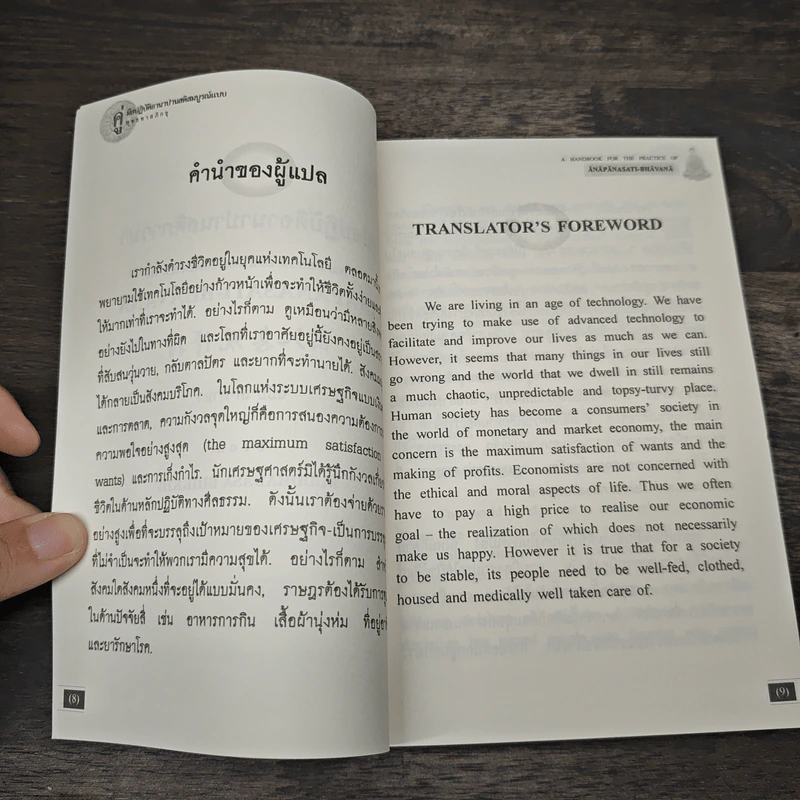 คู่
มือปฏิบัติอานาปานสติสมบูรณ์แบบ
พุทธทาสภิกขุ
คำนำของผู้แปล
เรากำลังดำรงชีวิตอยู่ในยุคแห่งเทคโนโลยี
พยายามใช้เทคโนโลยีอย่างก้าวหน้าเพื่อจะทำให้ชีวิตทั้งง่าย
ให้มากเท่าที่เราจะทำได้. อย่างไรก็ตาม ดูเหมือนว่ามีหลาย
อย่างยังไปในทางที่ผิด และโลกที่เราอาศัยอยู่นี้ยังคงอยู่
ที่สับสนวุ่นวาย, กลับตาลปัตร และยากที่จะทำนายได้.
ได้กลายเป็นสังคมบริโภค. ในโลกแห่งระบบเศรษฐกิจแบบ
และการตลาด, ความกังวลจุดใหญ่ก็คือการสนองความต้องการ
ความพอใจอย่างสูงสุด (the maximum satisfaction
wants) และการเก็งกำไร. นักเศรษฐศาสตร์มิได้รู้นึกกังวล
ชีวิตในด้านหลักปฏิบัติทางศีลธรรม. ดังนั้นเราต้องจ่ายด้วย
อย่างสูงเพื่อที่จะบรรลุถึงเป้าหมายของเศรษฐกิจ-เป็นการ
ที่ไม่จำเป็นจะทำให้พวกเรามีความสุขได้. อย่างไรก็ตาม
สังคมใดสังคมหนึ่งที่จะอยู่ได้แบบมั่นคง, ราษฎรต้องได้รับการ
ในด้านปัจจัยสี่ เช่น อาหารการกิน เสื้อผ้านุ่งห่ม
และยารักษาโรค.
(8)
A HANDBOOK FOR THE PRACTICE OF
ĀNĀPĀNASATI-BHĀVANĀ
TRANSLATOR'S FOREWORD
We are living in an age of technology. We have
been trying to make use of advanced technology to
facilitate and improve our lives as much as we can.
However, it seems that many things in our lives still
go wrong and the world that we dwell in still remains
a much chaotic, unpredictable and topsy-turvy place.
Human society has become a consumers' society in
the world of monetary and market economy, the main
concern is the maximum satisfaction of wants and the
making of profits. Economists are not concerned with
the ethical and moral aspects of life. Thus we often
have to pay a high price to realise our economic
goal – the realization of which does not necessarily
make us happy. However it is true that for a society
to be stable, its people need to be well-fed, clothed,
housed and medically well taken care of.
(9)